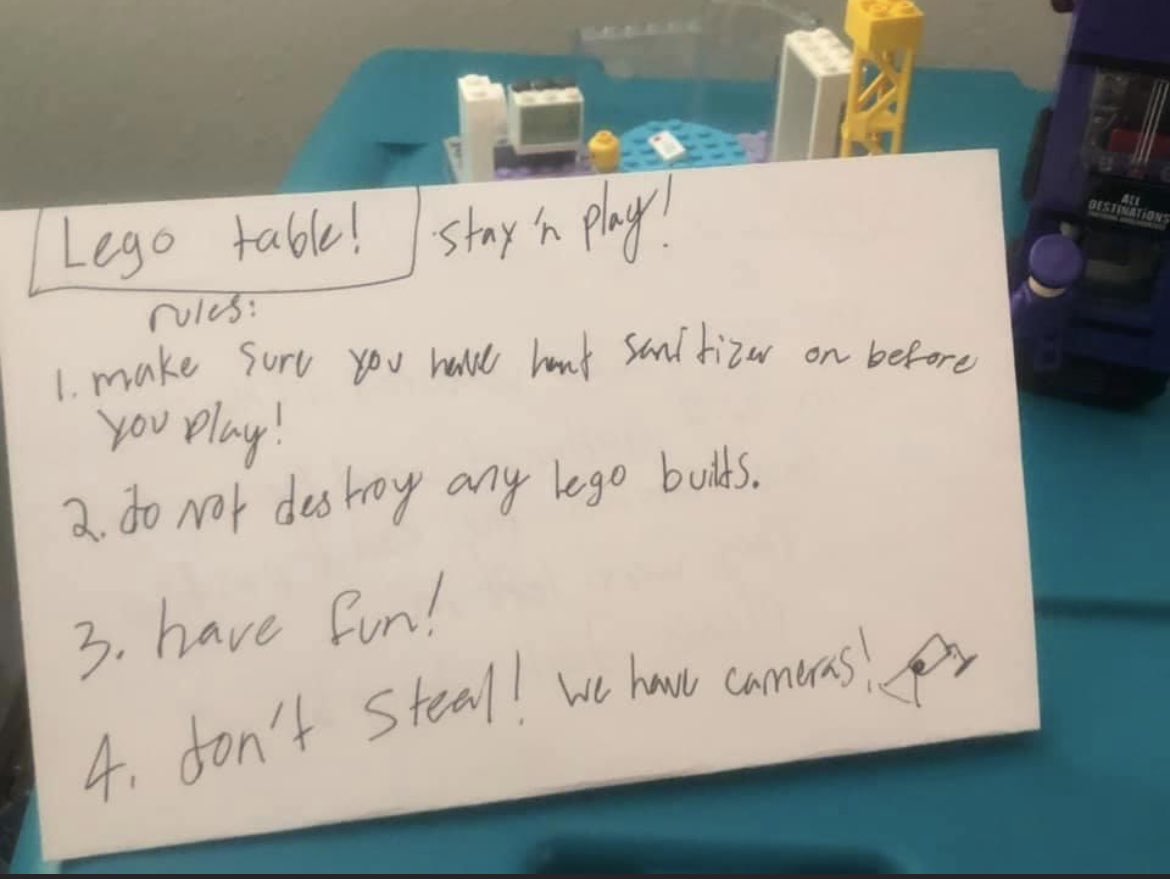 Lego table! stay 'n play!
rules:
1. make sure you have hant sanitizer on before
you play!
2. do not destroy any lego builds.
3. have fun!
4. don't steal! we have cameras!
ALL
DESTINATIONS